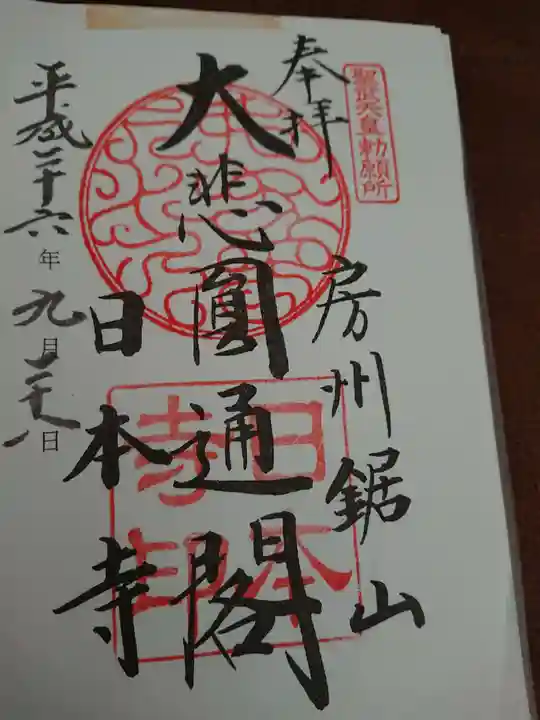 聖武天皇勅願所
奉拝
房州鋸山
大悲圓通閣
日本寺
日本寺印
平成二十六年九月二十八日